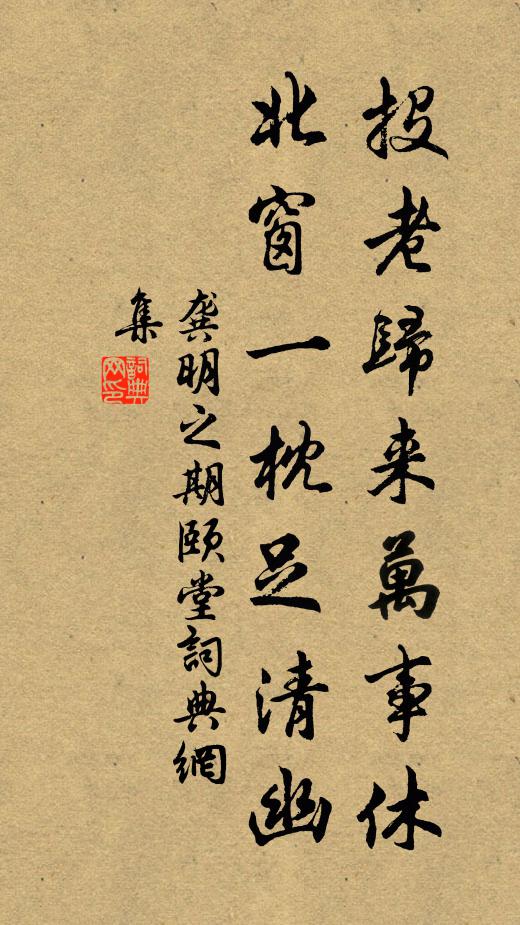 投老歸来萬事休
北窗一枕足清幽
龔明之期頤堂詞典網
集
詞典
网印